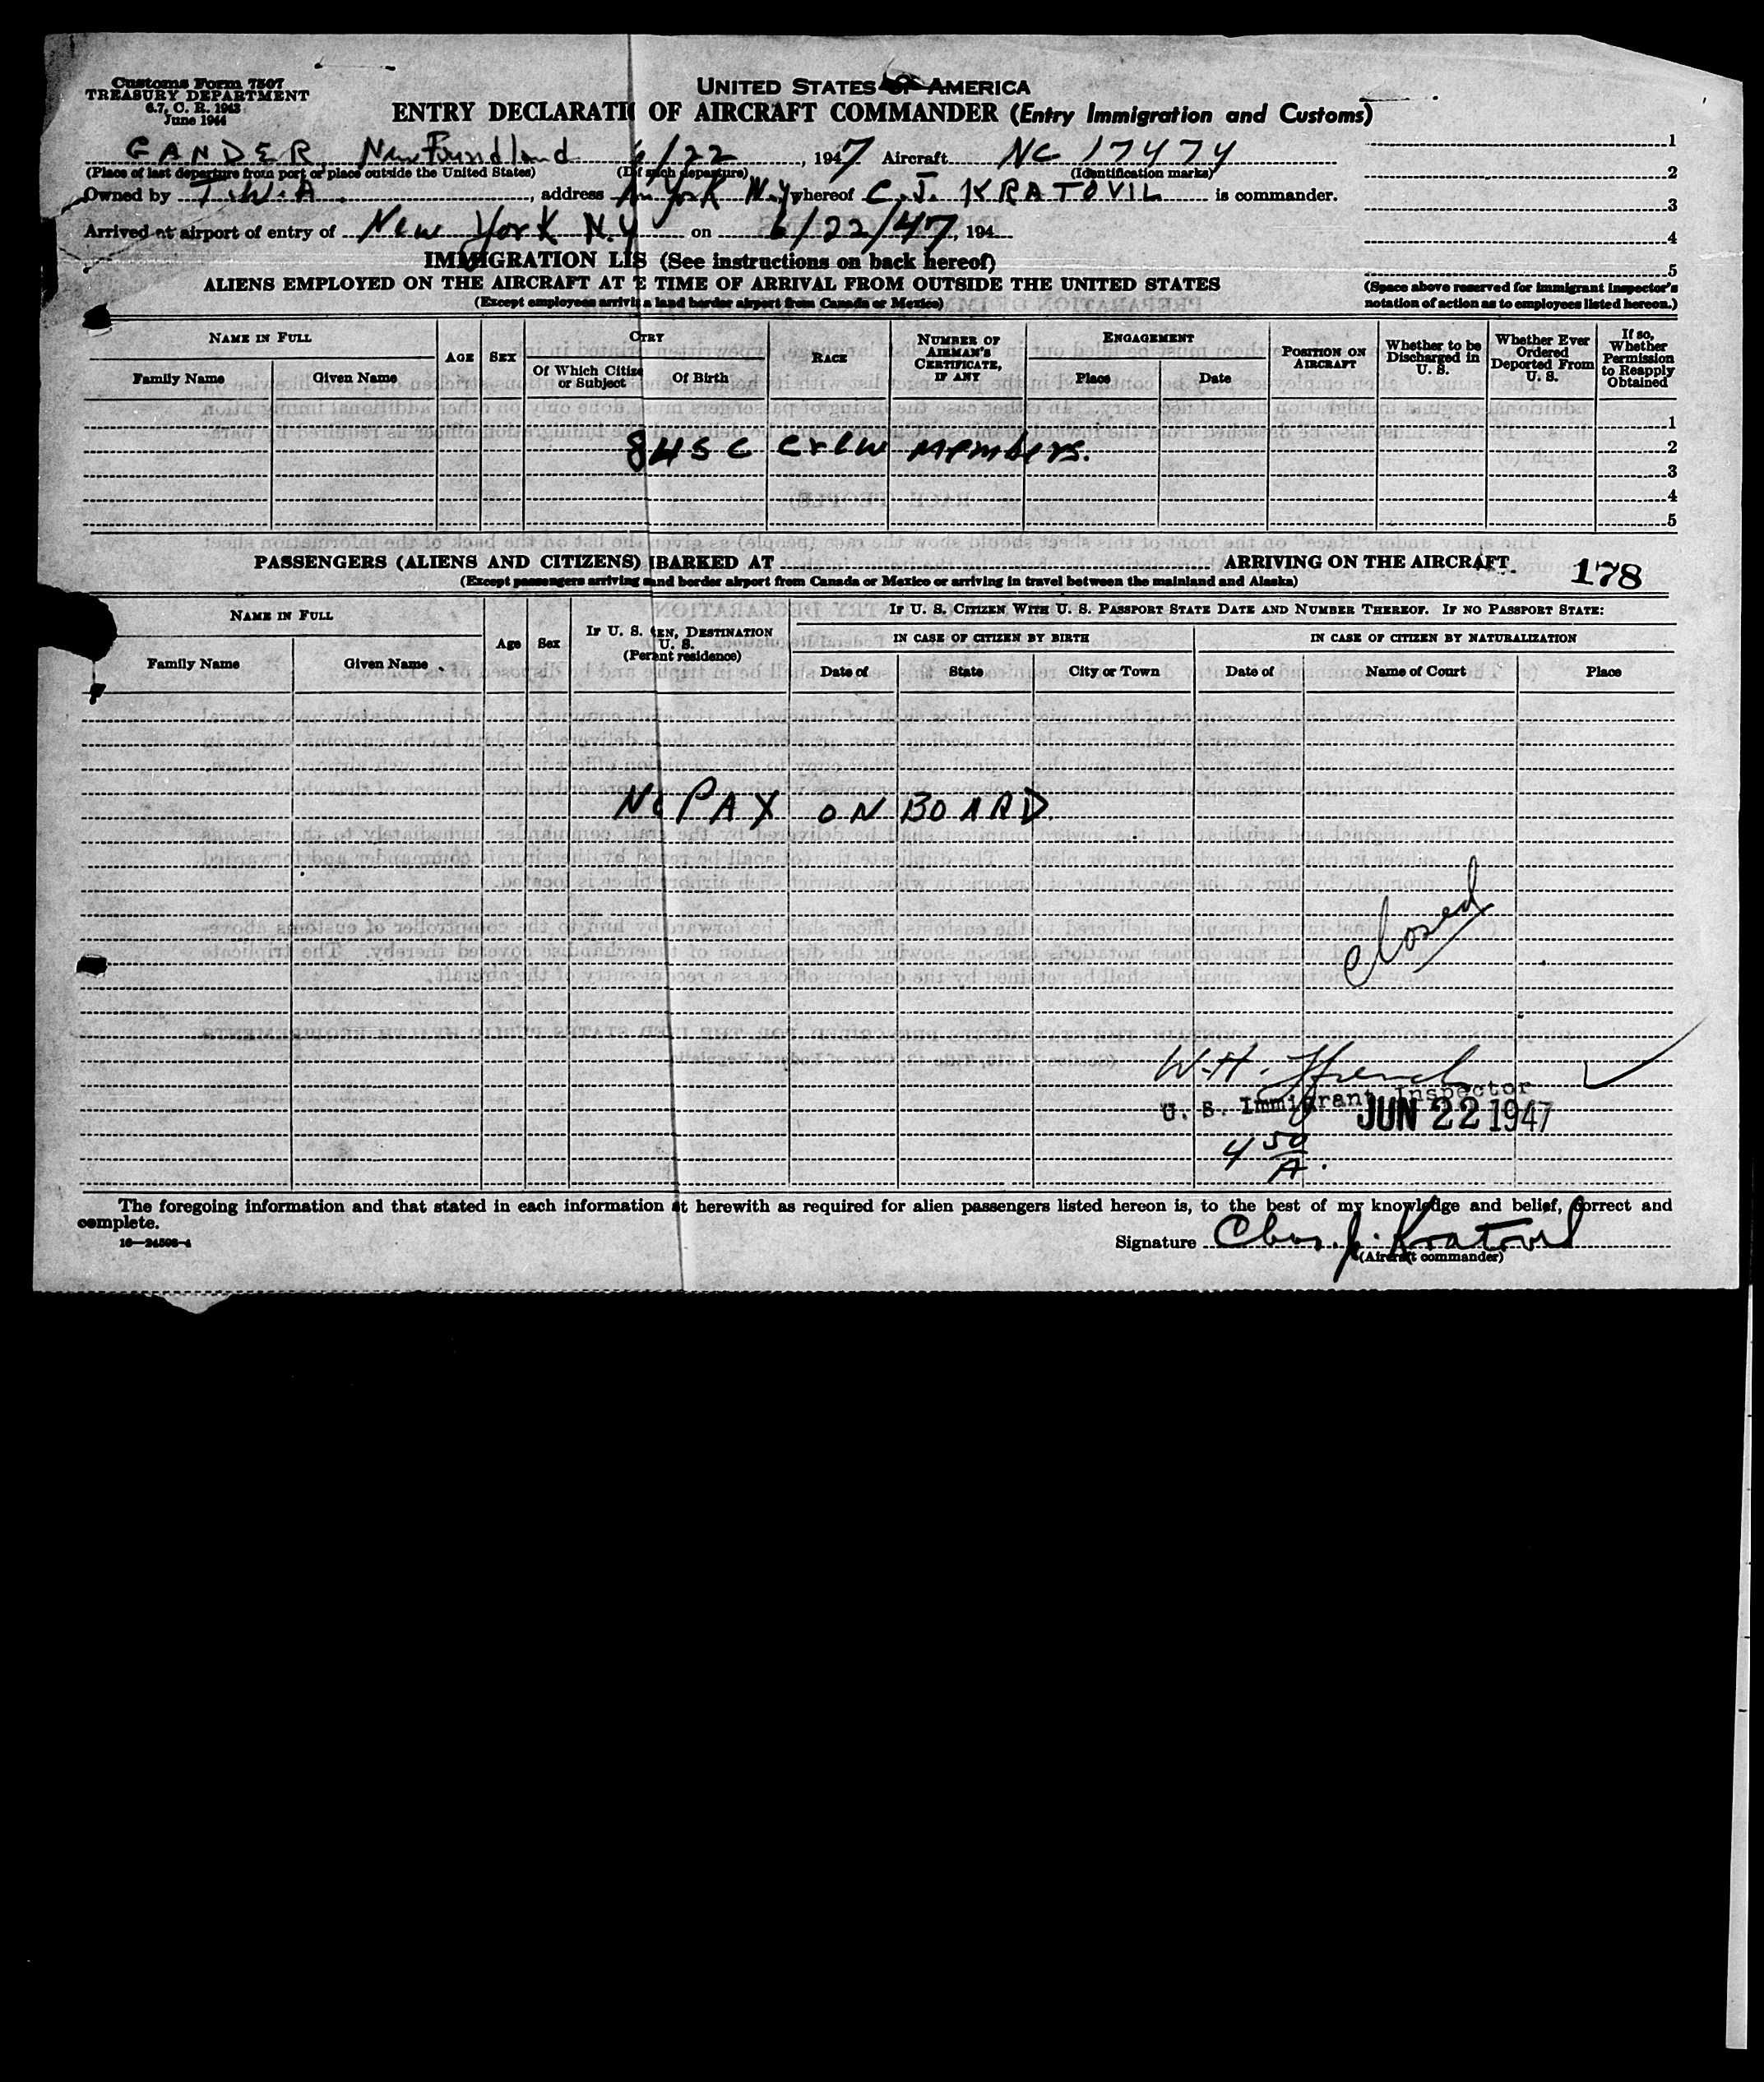 Customs Form 7507
TREASURY DEPARTMENT
6.7, C. R. 1943
June 1944
UNITED STATES OF AMERICA
ENTRY DECLARATI OF AIRCRAFT COMMANDER (Entry Immigration and Customs)
GANDER, NewFoundland 6/22, 1947 Aircraft NC 17474
(Place of last departure from port or place outside the United States) (D of such departure) (Identification marks)
Owned by T.W.A., address N. York N.Y whereof C.J. KRATOVIL is commander.
Arrived at airport of entry of New York N.Y on 6/22/47, 194
1
2
3
4
5
(Space above reserved for immigrant inspector's
notation of action as to employees listed hereon.)
IMMIGRATION LIS (See instructions on back hereof)
ALIENS EMPLOYED ON THE AIRCRAFT AT E TIME OF ARRIVAL FROM OUTSIDE THE UNITED STATES
(Except employees arrivi a land border airport from Canada or Mexico)
NAME IN FULL
Family Name Given Name
AGE SEX
CTRY
Of Which Citize
or Subject
Of Birth
RACE
NUMBER OF
AIRMAN'S
CERTIFICATE,
IF ANY
ENGAGEMENT
Place Date
POSITION ON
AIRCRAFT
Whether to be
Discharged in
U. S.
Whether Ever
Ordered
Deported From
U. S.
If so,
Whether
Permission
to Reapply
Obtained
1
8 USC Crew members. 2
3
4
5
PASSENGERS (ALIENS AND CITIZENS) BARKED AT ARRIVING ON THE AIRCRAFT 178
(Except passengers arriving and border airport from Canada or Mexico or arriving in travel between the mainland and Alaska)
NAME IN FULL
Family Name Given Name
Age Sex
IF U. S. EN, DESTINATION
U. S.
(Perant residence)
IF U. S. CITIZEN WITH U. S. PASSPORT STATE DATE AND NUMBER THEREOF. IF NO PASSPORT STATE:
IN CASE OF CITIZEN BY BIRTH IN CASE OF CITIZEN BY NATURALIZATION
Date of State City or Town Date of Name of Court Place
No PAX ON BOARD.
closed
W.H. French
U. S. Immigrant Inspector
JUN 22 1947
4 50
A.
The foregoing information and that stated in each information at herewith as required for alien passengers listed hereon is, to the best of my knowledge and belief, correct and
complete.
16—24598-4
Signature Chas. J. Kratovil
(Aircraft commander)